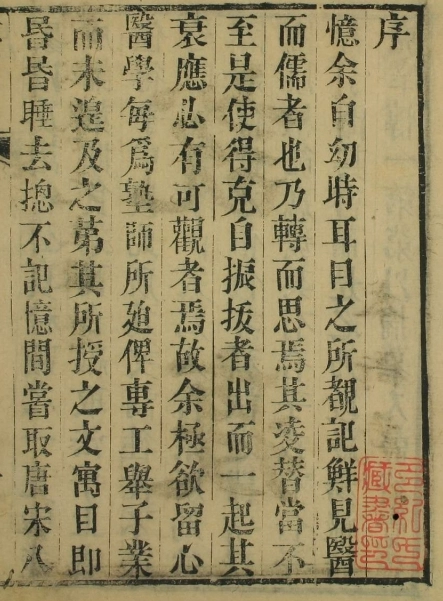 序
憶余自幼時耳目之所覩記鮮見醫
而儒者也乃轉而思焉其凌替當不
至是使得克自振拔者出而一起其
衰應必有可觀者焉故余極欲留心
醫學每為塾師所廹俾專工舉子業
而未遑及之第其所授之文寓目即
昏昏睡去摠不記憶間嘗取唐宋八
藏書